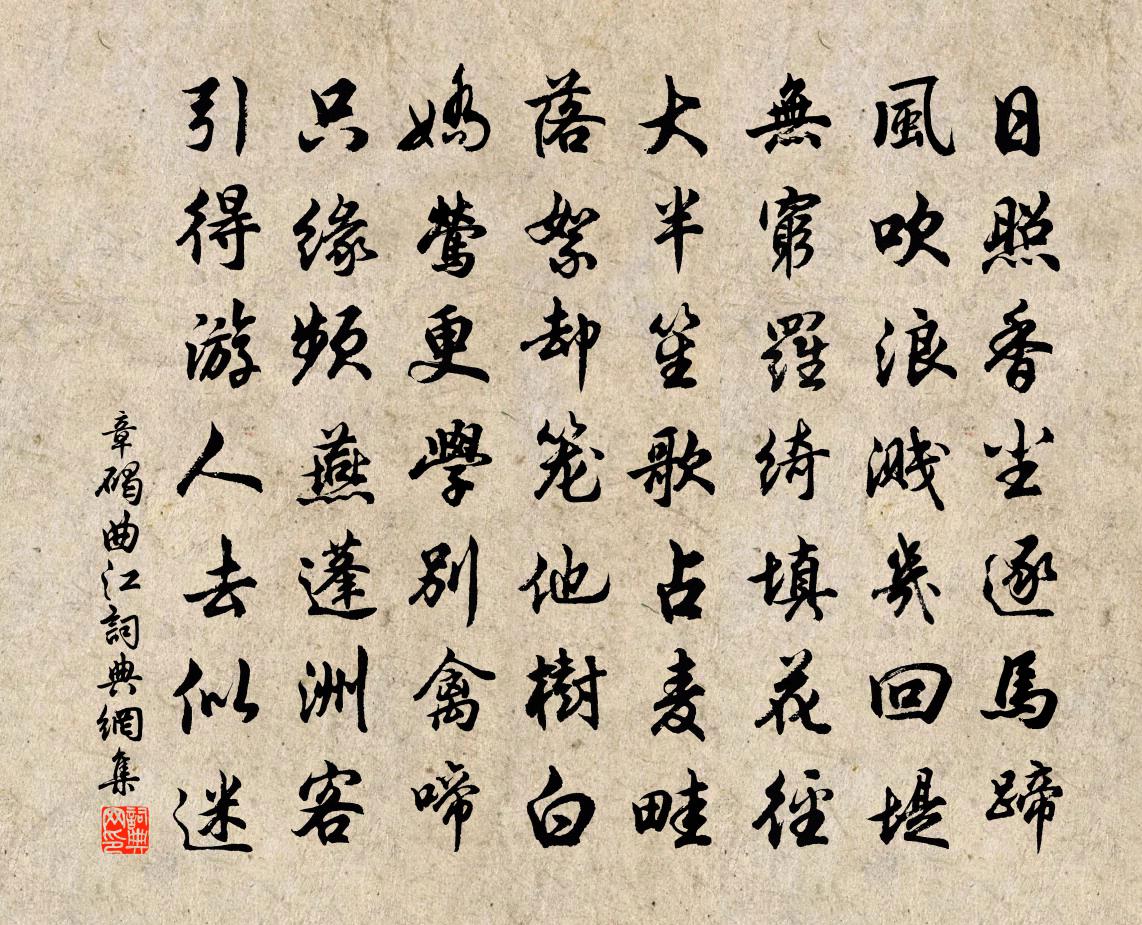 日照香塵逐馬蹄
風吹浪濺幾回堤
無窮羅綺填花徑
大半笙歌占麦畦
落絮却笼他樹白
嬌鶯更學別禽啼
只缘頻燕蓬洲客
引得游人去似迷
章碣曲江詞典網集
詞典网印